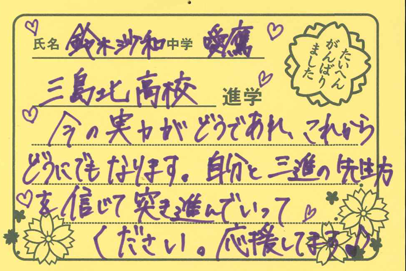 氏名 鈴木沙和 中学 愛鷹
たいへん
がんばり
ました
三島北高校 進学
今の実力がどうであれ、これから
どうにでもなります。自分と三進の先生方
を信じて突き進んでいって
ください。応援してます♪